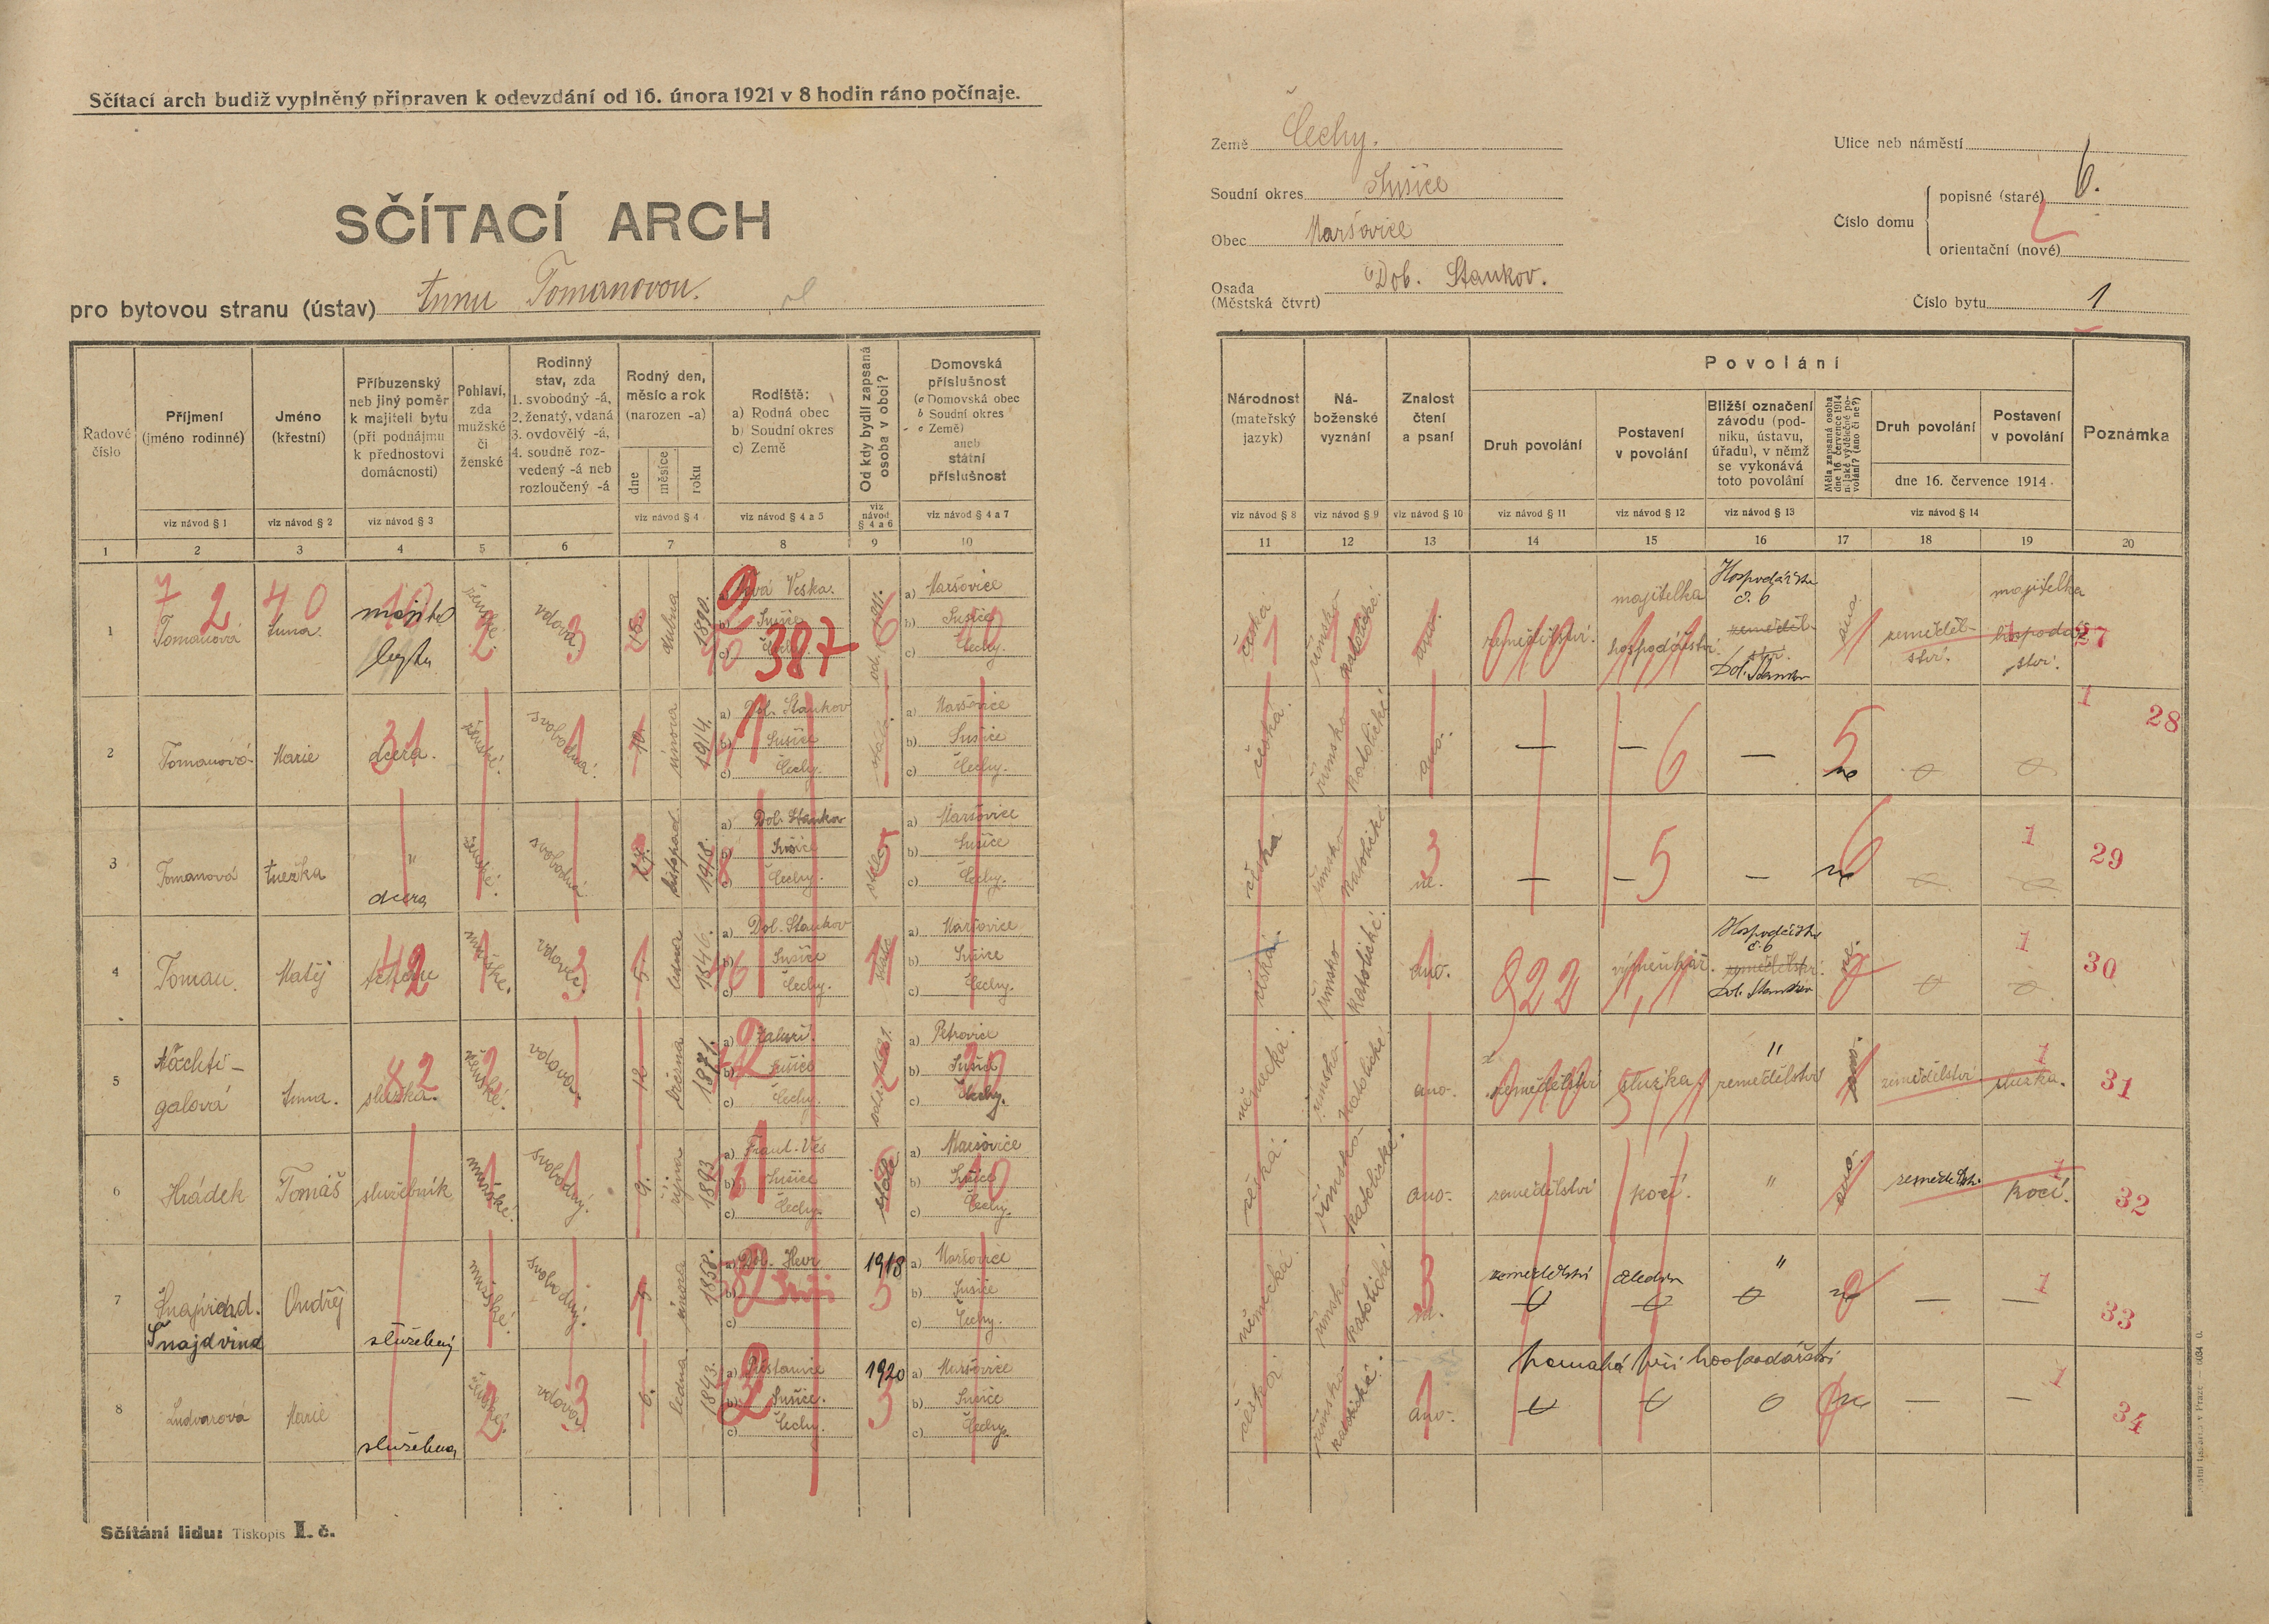 Sčítací arch budiž vyplněný připraven k odevzdání od 16. února 1921 v 8 hodin ráno počínaje.
SČÍTACÍ ARCH
pro bytovou stranu (ústav) Annu Tomanovou.
Země Čechy.
Soudní okres Sušice
Obec Maršovice
Osada Dol. Stankov.
(Městská čtvrt)
Ulice neb náměstí
Číslo domu
popisné (staré) 6.
orientační (nové)
Číslo bytu 1
Řadové číslo
Příjmení (jméno rodinné)
viz návod § 1
Jméno (křestní)
viz návod § 2
Příbuzenský neb jiný poměr k majiteli bytu (při podnájmu k přednostovi domácnosti)
viz návod § 3
Pohlaví, zda mužské či ženské
Rodinný stav, zda
1. svobodný -á,
2. ženatý, vdaná
3. ovdovělý -á,
4. soudně rozvedený -á neb rozloučený -á
Rodný den, měsíc a rok (narozen -a)
dne měsíce roku
viz návod § 4
Rodiště:
a) Rodná obec
b) Soudní okres
c) Země
viz návod § 4 a 5
Od kdy bydlí zapsaná osoba v obci?
viz návod § 4 a 6
Domovská příslušnost
(a Domovská obec
b Soudní okres
c Země)
aneb státní příslušnost
viz návod § 4 a 7
1 2 3 4 5 6 7 8 9 10
Národnost (mateřský jazyk)
viz návod § 8
Náboženské vyznání
viz návod § 9
Znalost čtení a psaní
viz návod § 10
Povolání
Druh povolání
viz návod § 11
Postavení v povolání
viz návod § 12
Bližší označení závodu (podniku, ústavu, úřadu), v němž se vykonává toto povolání
viz návod § 13
Měla zapsaná osoba dne 16. července 1914 nějaké výdělečné povolání? (ano či ne?)
Druh povolání
Postavení v povolání
dne 16. července 1914
viz návod § 14
Poznámka
11 12 13 14 15 16 17 18 19 20
1 Tomanová Anna. bytu ženské. vdova 15. dubna 1890. a) Nová Veska. b) Sušice c) Čechy 387 a) Maršovice b) Sušice c) Čechy.
česká. římsko katolické. ano. zemědělství. majitelka hospodářství. Hospodářství č. 6 Dol. Stankov ano. zemědělství. majitelka hospodářství. 27
2 Tomanová Marie dcera. ženské. svobodná. 10. února 1914. a) Dol. Stankov b) Sušice c) Čechy. a) Maršovice b) Sušice c) Čechy.
česká. římsko katolické ano. — — — ne 28
3 Tomanová Anežka " dcera ženské. svobodná listopad 1918. a) Dol. Stankov b) Sušice c) Čechy. a) Maršovice b) Sušice c) Čechy.
česká římsko katolické ne. — — — ne 29
4 Toman. Matěj mužské. vdovec. 5. ledna 1846. a) Dol. Stankov b) Sušice c) Čechy. a) Maršovice b) Sušice c) Čechy.
česká. římsko katolické. ano. 922 výměnkář. Hospodářství č. 6 zemědělství. Dol. Stankov ne. 30
5 Nächtigalová Anna. služka. ženské. vdova. 12. března 1871. b) Sušice c) Čechy. a) Petrovice b) Sušice c) Čechy.
německá. římsko katolické. ano. zemědělství služka. " zemědělství ano. zemědělství služka. 31
6 Hrádek Tomáš služebník mužské. svobodný. 9. října 1893 a) Frant. Ves b) Sušice c) Čechy. stále a) Maršovice b) Sušice c) Čechy.
česká. římsko katolické. ano. zemědělství kočí. " ano. zemědělství. kočí. 32
7 Šnajdvind Ondřej služebný mužské. svobodný. 5. února 1858. a) Dol. Hevr b) Suši c) 1918 a) Maršovice b) Sušice c) Čechy.
německá. římsko katolické ne. zemědělství čledín " ne — — 33
8 Ludvarová Marie služebna ženské vdova. 6. ledna 1843. b) Sušice. c) Čechy. 1920 a) Maršovice b) Sušice c) Čechy.
česká římsko katolické. ano. pomáhá při hospodářství ne — — 34
Sčítání lidu: Tiskopis I. č.